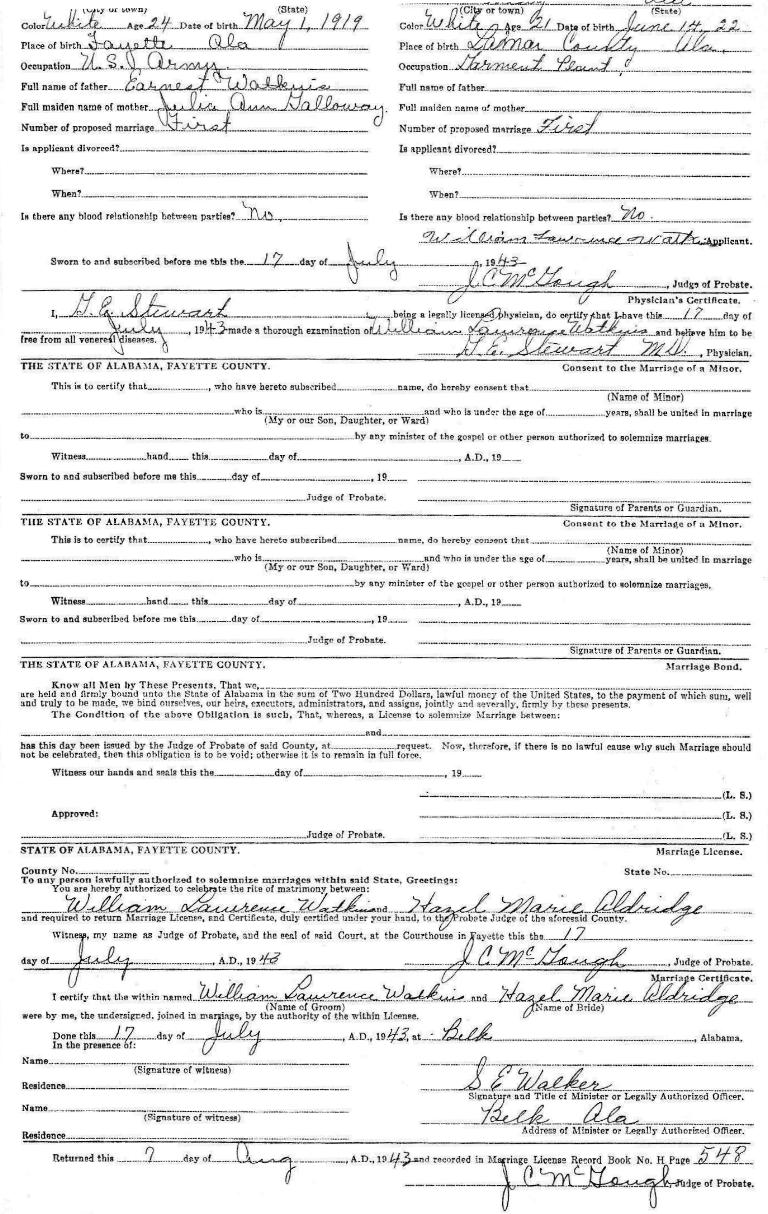 (City or town) (State) (City or town) (State)
Color White Age 24 Date of birth May 1, 1919 Color White Age 21 Date of birth June 14, 22
Place of birth Fayette Ala Place of birth Lamar County Ala.
Occupation U.S. Army Occupation Garment Plant
Full name of father Earnest Watkins Full name of father
Full maiden name of mother Julia Ann Galloway. Full maiden name of mother
Number of proposed marriage First Number of proposed marriage First
Is applicant divorced? Is applicant divorced?
Where? Where?
When? When?
Is there any blood relationship between parties? No. Is there any blood relationship between parties? No.
William Lawrence Watkins Applicant.
Sworn to and subscribed before me this the 17 day of July, 1943
J C McGough, Judge of Probate.
Physician's Certificate.
I, G. E. Stewart being a legally licensed physician, do certify that I have this 17 day of
July, 1943 made a thorough examination of William Lawrence Watkins and believe him to be
free from all venereal diseases. G. E. Stewart MD., Physician.
THE STATE OF ALABAMA, FAYETTE COUNTY. Consent to the Marriage of a Minor.
This is to certify that, who have hereto subscribed name, do hereby consent that
(Name of Minor)
who is and who is under the age of years, shall be united in marriage
(My or our Son, Daughter, or Ward)
to by any minister of the gospel or other person authorized to solemnize marriages.
Witness hand this day of, A.D., 19
Sworn to and subscribed before me this day of, 19
Judge of Probate.
Signature of Parents or Guardian.
THE STATE OF ALABAMA, FAYETTE COUNTY. Consent to the Marriage of a Minor.
This is to certify that, who have hereto subscribed name, do hereby consent that
(Name of Minor)
who is and who is under the age of years, shall be united in marriage
(My or our Son, Daughter, or Ward)
to by any minister of the gospel or other person authorized to solemnize marriages.
Witness hand this day of, A.D., 19
Sworn to and subscribed before me this day of, 19
Judge of Probate.
Signature of Parents or Guardian.
THE STATE OF ALABAMA, FAYETTE COUNTY. Marriage Bond.
Know all Men by These Presents, That we,
are held and firmly bound unto the State of Alabama in the sum of Two Hundred Dollars, lawful money of the United States, to the payment of which sum, well
and truly to be made, we bind ourselves, our heirs, executors, administrators, and assigns, jointly and severally, firmly by these presents.
The Condition of the above Obligation is such, That, whereas, a License to solemnize Marriage between:
and
has this day been issued by the Judge of Probate of said County, at request. Now, therefore, if there is no lawful cause why such Marriage should
not be celebrated, then this obligation is to be void; otherwise it is to remain in full force.
Witness our hands and seals this the day of, 19
(L. S.)
Approved: (L. S.)
Judge of Probate. (L. S.)
STATE OF ALABAMA, FAYETTE COUNTY. Marriage License.
County No. State No.
To any person lawfully authorized to solemnize marriages within said State, Greetings:
You are hereby authorized to celebrate the rite of matrimony between:
William Lawrence Watkins and Hazel Marie Aldridge
and required to return Marriage License, and Certificate, duly certified under your hand, to the Probate Judge of the aforesaid County.
Witness, my name as Judge of Probate, and the seal of said Court, at the Courthouse in Fayette this the 17
day of July, A.D., 1943 J C McGough, Judge of Probate.
Marriage Certificate.
I certify that the within named William Lawrence Watkins and Hazel Marie Aldridge
(Name of Groom) (Name of Bride)
were by me, the undersigned, joined in marriage, by the authority of the within License.
Done this 17 day of July, A.D., 1943, at Belk, Alabama.
In the presence of:
Name
(Signature of witness) S E Walker
Residence Signature and Title of Minister or Legally Authorized Officer.
Name Belk Ala
(Signature of witness) Address of Minister or Legally Authorized Officer.
Residence
Returned this 7 day of Aug, A.D., 1943 and recorded in Marriage License Record Book No. H Page 548
J C McGough Judge of Probate.